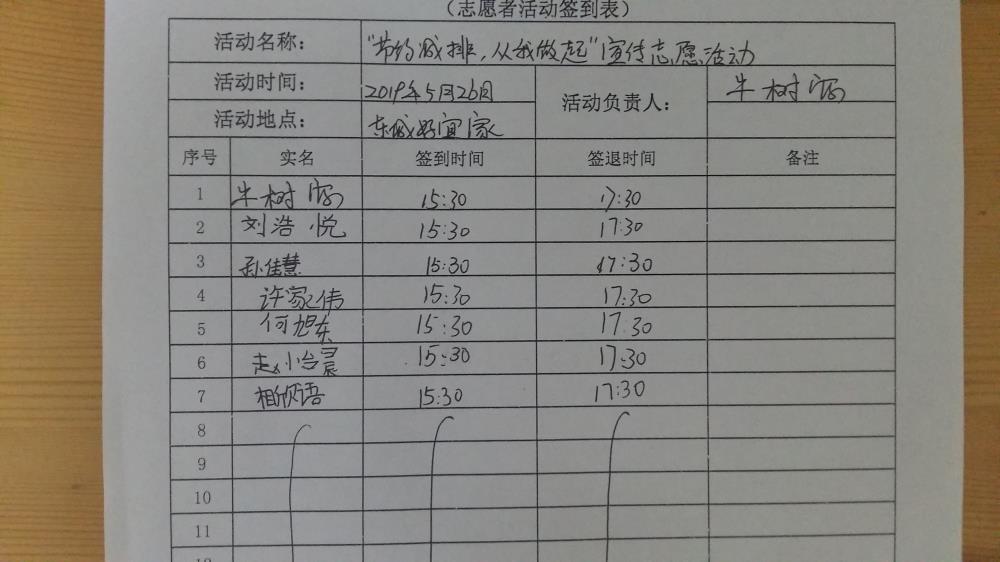 （志愿者活动签到表）
活动名称： "节约减排，从我做起"宣传志愿活动
活动时间： 2019年5月26日 活动负责人： 牛树
活动地点： 东城好宜家
序号 实名 签到时间 签退时间 备注
1 牛树 15:30 17:30
2 刘浩悦 15:30 17:30
3 孙佳慧 15:30 17:30
4 许家伟 15:30 17:30
5 何旭东 15:30 17:30
6 赵 15:30 17:30
7 相欣语 15:30 17:30
8
9
10
11
12